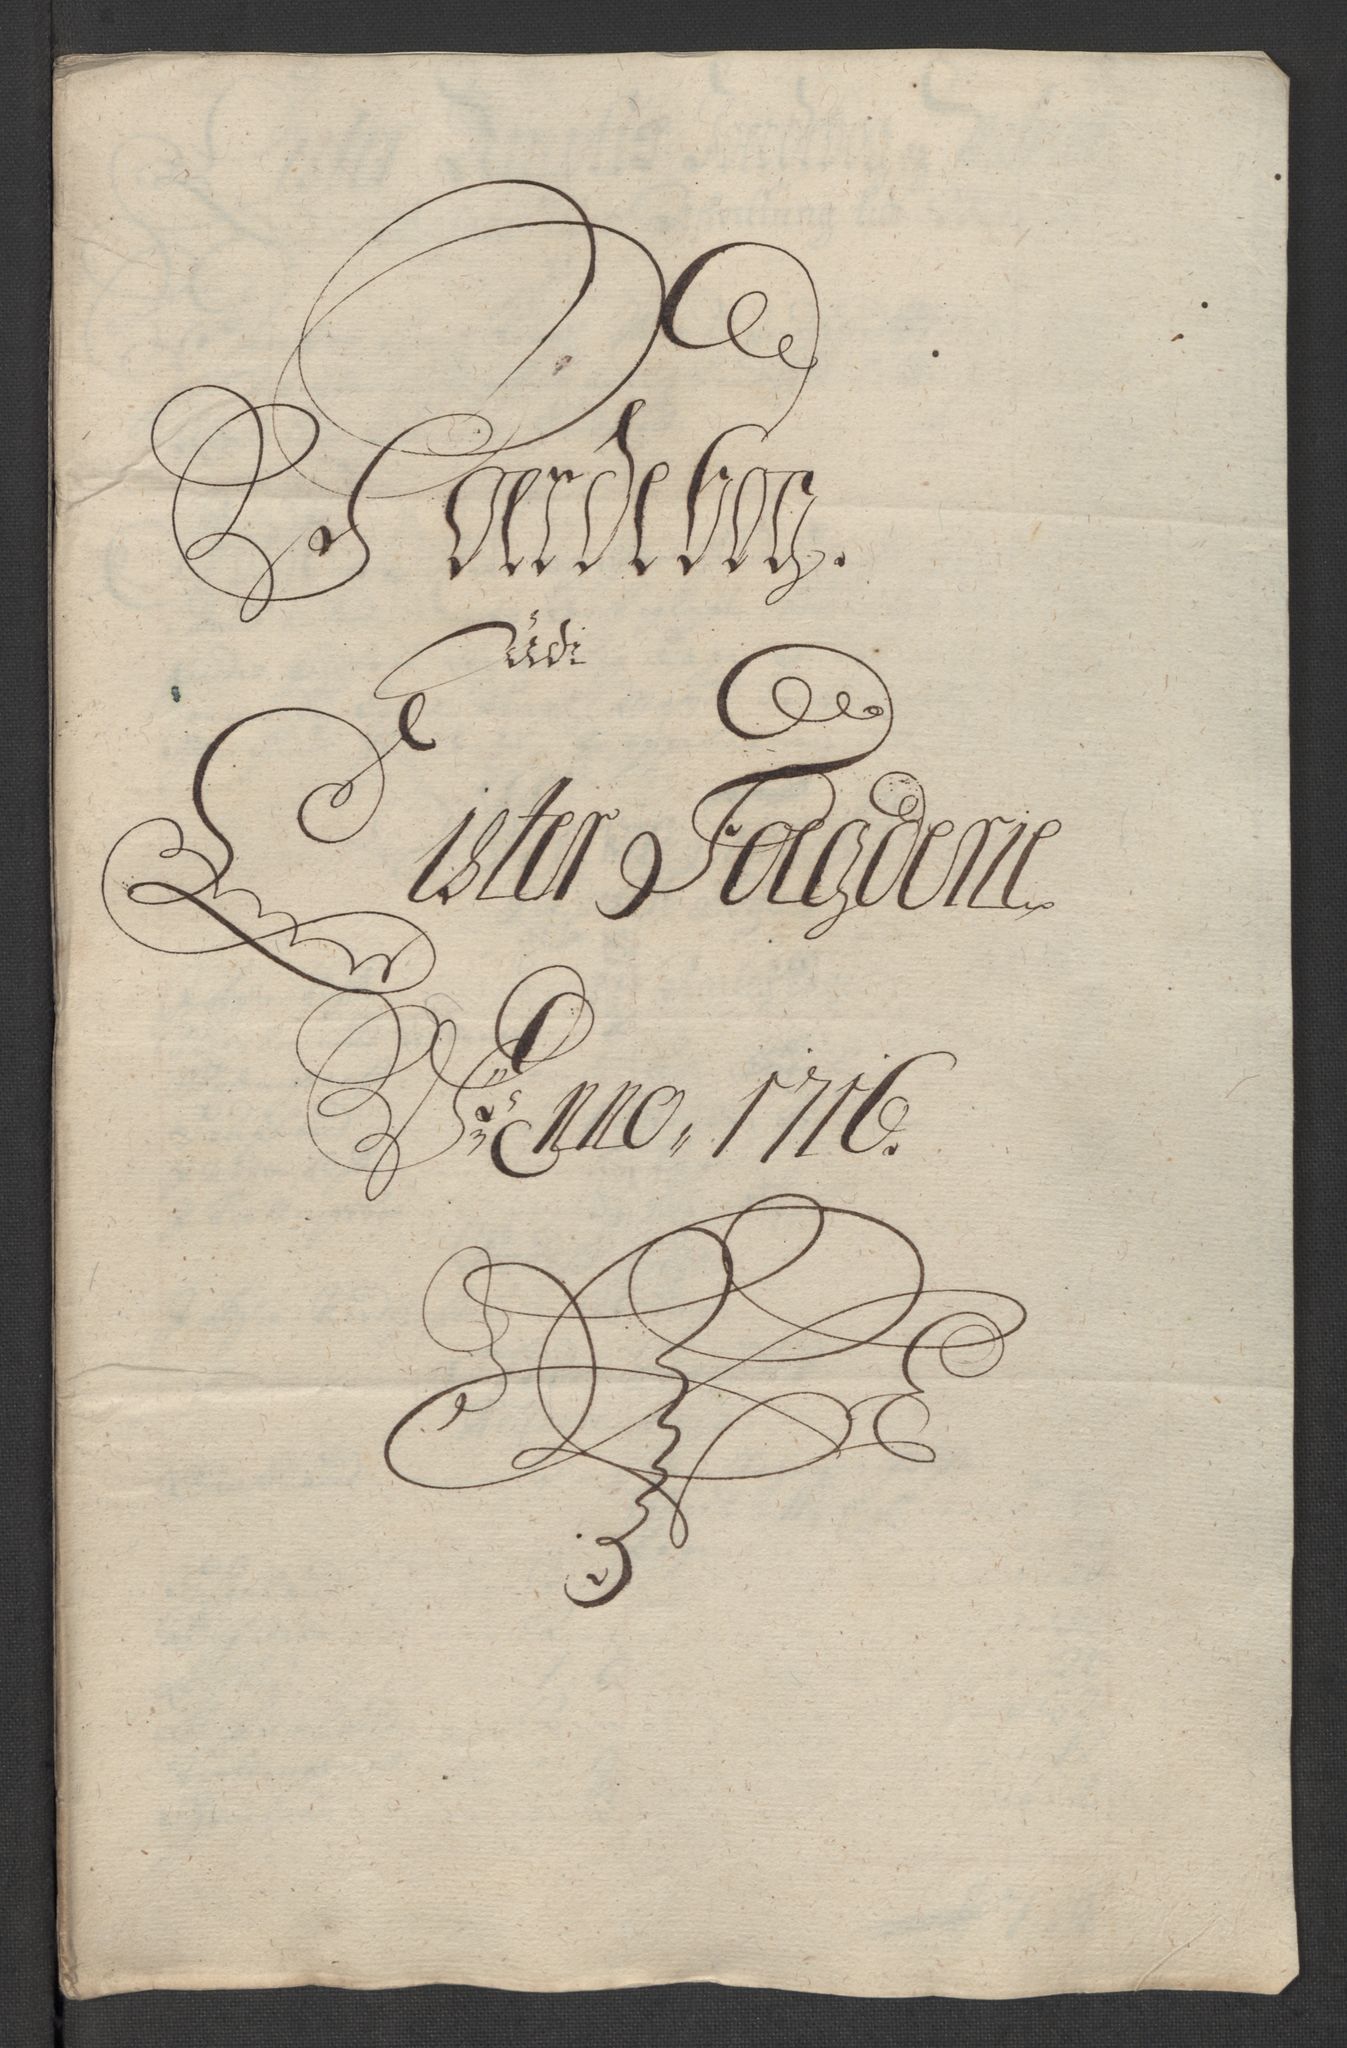 Jordebog.
udi
Lister Fogderie
Anno, 1716.